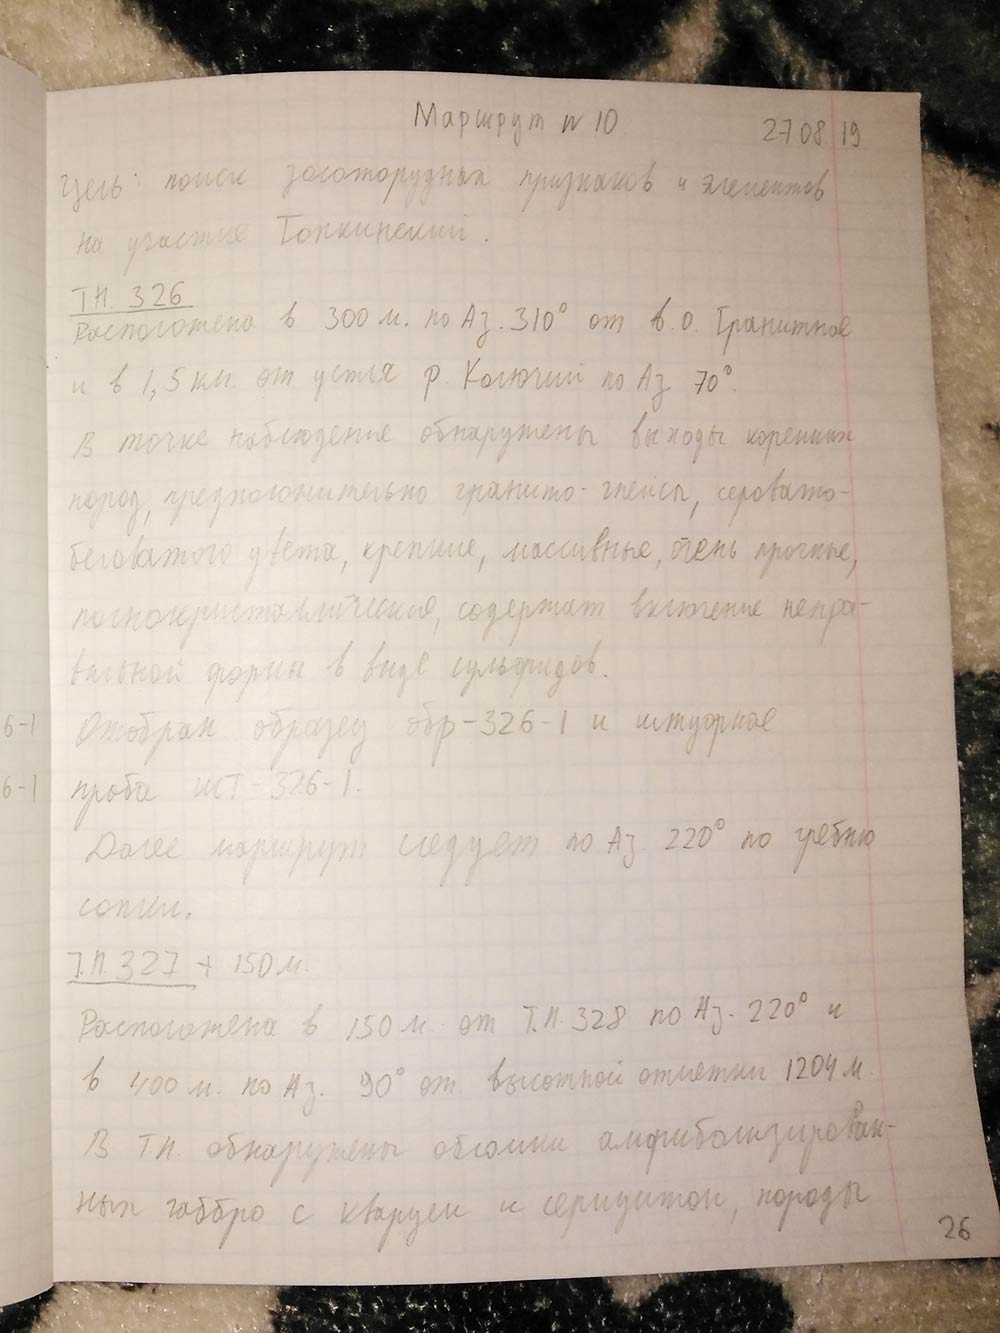 Маршрут № 10
27 08 19
Цель: поиск золоторудных признаков и элементов
на участке Топкинский.
Т.Н. 326
Расположена в 300 м. по Аз. 310° от в.о. Гранитное
и в 1,5 км. от устья р. Колючий по Аз 70°.
В точке наблюдение обнаружены выходы коренных
пород, предположительно гранито-гнейсы, серовато-
беловатого цвета, крепкие, массивные, очень прочные,
полнокристаллические, содержат включение непра-
вильной формы в виде сульфидов.
6-1 Отобран образец обр-326-1 и штуфное
6-1 проба шт-326-1.
Далее маршрут следует по Аз 220° по гребню
сопки.
Т.Н. 327 + 150 м.
Расположена в 150 м от Т.Н. 328 по Аз. 220° и
в 400 м. по Аз. 90° от высотной отметки 1204 м.
В Т.Н. обнаружены обломки амфиболизирован-
ных габбро с кварцем и серицитом, породы
26